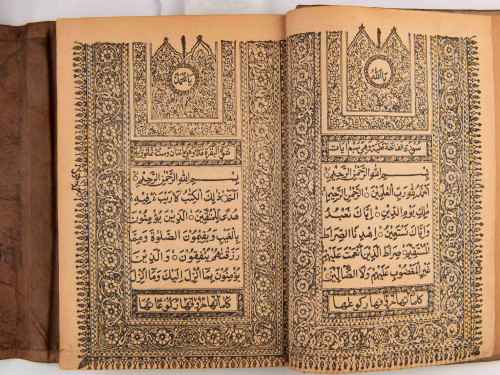 سُوْرَةُ الْفَاتِحَةِ مَكِّيَّةٌ وَهِيَ سَبْعُ اٰيَاتٍ
بِسْمِ اللهِ الرَّحْمٰنِ الرَّحِيْمِ
اَلْحَمْدُ لِلّٰهِ رَبِّ الْعٰلَمِيْنَ ۝ الرَّحْمٰنِ الرَّحِيْمِ ۝
مٰلِكِ يَوْمِ الدِّيْنِ ۝ اِيَّاكَ نَعْبُدُ
وَاِيَّاكَ نَسْتَعِيْنُ ۝ اِهْدِنَا الصِّرَاطَ
الْمُسْتَقِيْمَ ۝ صِرَاطَ الَّذِيْنَ اَنْعَمْتَ عَلَيْهِمْ
غَيْرِ الْمَغْضُوْبِ عَلَيْهِمْ وَلَا الضَّآلِّيْنَ
سورة البقرة
بِسْمِ اللهِ الرَّحْمٰنِ الرَّحِيْمِ
الٓمّٓ ۝ ذٰلِكَ الْكِتٰبُ لَا رَيْبَ فِيْهِ
هُدًى لِّلْمُتَّقِيْنَ ۝ الَّذِيْنَ يُؤْمِنُوْنَ
بِالْغَيْبِ وَيُقِيْمُوْنَ الصَّلٰوةَ وَمِمَّا
رَزَقْنٰهُمْ يُنْفِقُوْنَ ۝ وَالَّذِيْنَ
يُؤْمِنُوْنَ بِمَآ اُنْزِلَ اِلَيْكَ وَمَآ اُنْزِلَ